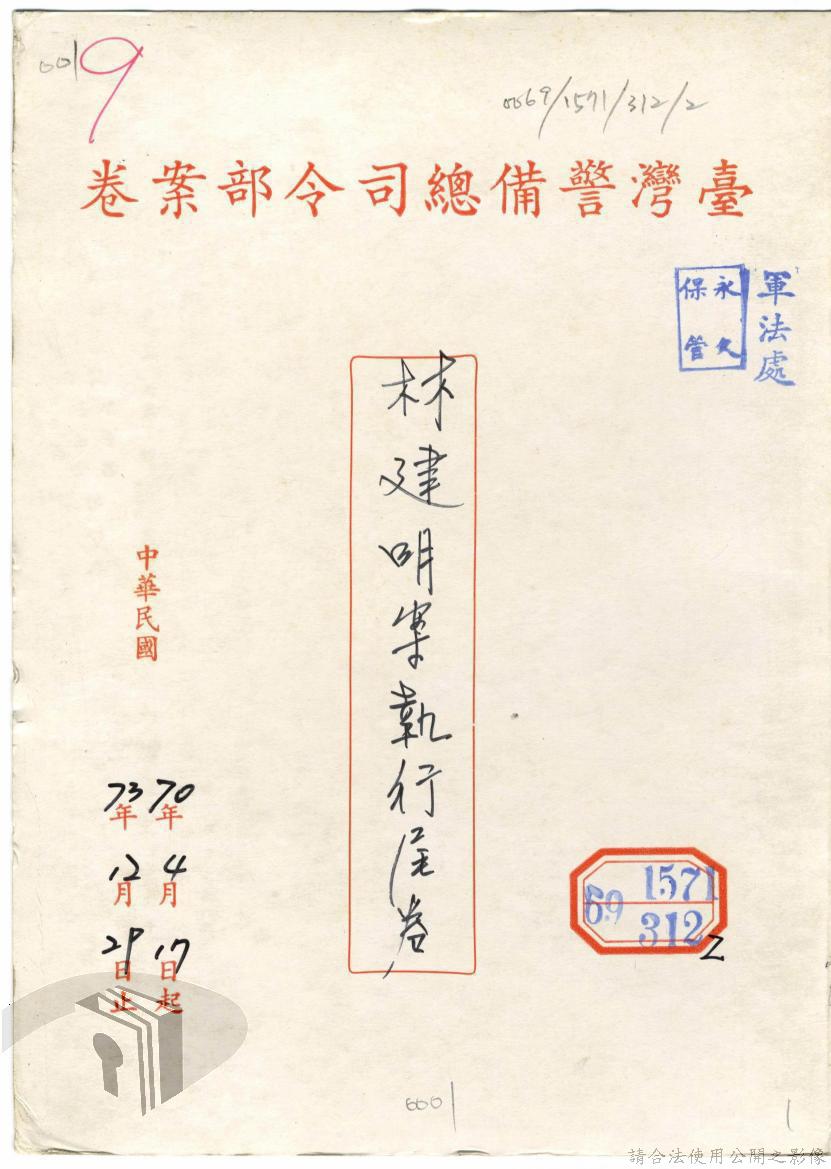 001
9
0069/1571/312/2
臺灣警備總司令部案卷
軍法處
永久
保管
林建明案執行尾卷
中華民國
70年4月17日起
73年12月29日止
69
1571
312
2
0001
1
請合法使用公開之影像